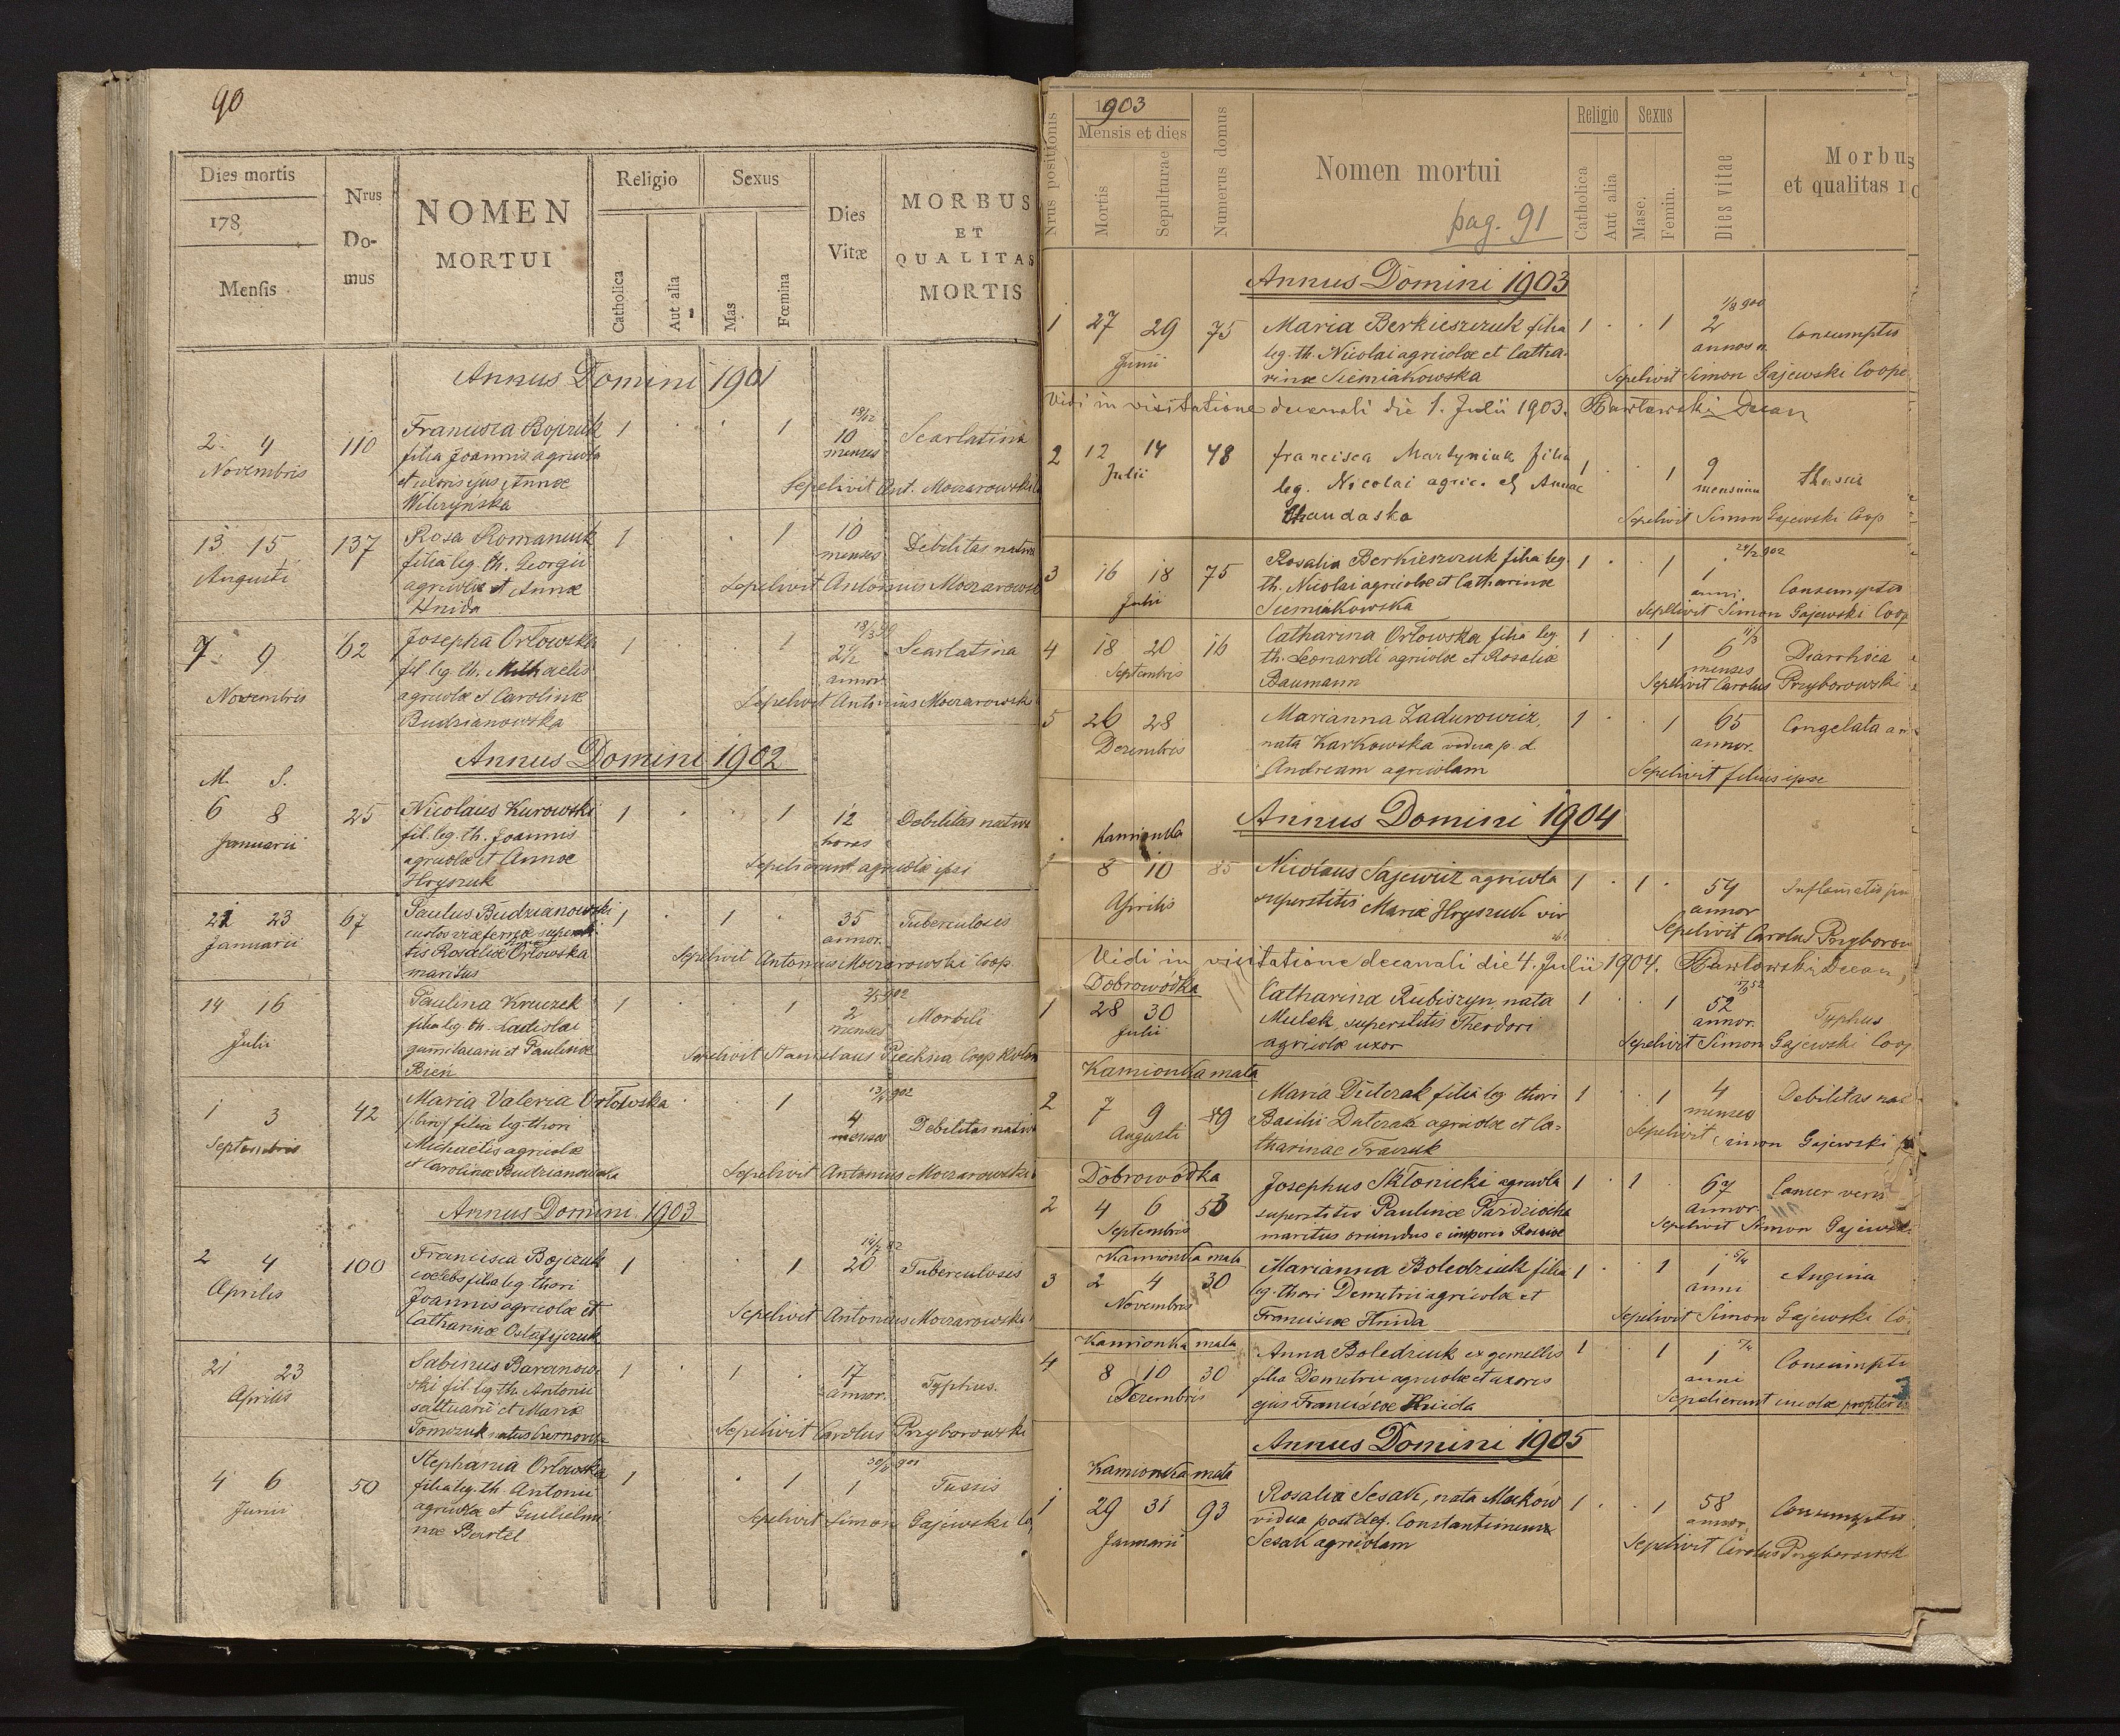 90
Dies mortis
178
Mensis
Nrus Do-mus
NOMEN
MORTUI
Religio
Catholica
Aut alia
Sexus
Mas
Fœmina
Dies Vitæ
MORBUS
ET
QUALITAS
MORTIS
Annus Domini 1901
2. 4 110 Francisca Bojczuk 1 . . 1 18/12 10 menses Scarlatina
Novembris filia Joannis agricolæ
et uxoris ejus Annæ
Wilczyńska
Sepelivit Ant. Moczarowski
13 15 137 Rosa Romaniuk 1 . . 1 10 menses Debilitas naturæ
Augusti filia leg. th. Georgii
agricolæ et Annæ
Hnida
Sepelivit Antonius Moczarowski
7. 9 62 Josepha Orłowska 1 . . 1 2 1/2 annor. Scarlatina
Novembris fil. leg. th. Michaelis
agricolæ et Carolinæ
Budzianowska
Sepelivit Antonius Moczarowski
Annus Domini 1902
M. S.
6 8 25 Nicolaus Kurowski 1 . . 1 12 horas Debilitas naturæ
Januarii fil. leg. th. Joannis
agricolæ et Annæ
Hryszuk
Sepelierunt agricolæ ipsi
21 23 67 Paulus Budzianowski 1 . 1 . 35 annor. Tuberculosis
Januarii custos viæ ferreæ supersti
tis Rosaliæ Orłowska
maritus
Sepelivit Antonius Moczarowski Coop.
14 16 Paulina Kruczek 1 . . 1 2/5 902 2 menses Morbili
Julii filia leg. th. Ladislai
et Paulinæ
Bień
Sepelivit Stanislaus Piechna Coop
1 3 42 Maria Valeria Orłowska . . 1 13/4 902 4 menses Debilitas naturæ
Septembris filia leg. thori
Michaelis agricolæ
et Carolinæ Budzianowska
Sepelivit Antonius Moczarowski
Annus Domini 1903
2 4 100 Francisca Bojczuk 1 . . 1 20 Tuberculosis
Aprilis coelebs filia leg. thori
Joannis agricolæ et
Catharinæ Ostafijczuk
Sepelivit Antonius Moczarowski
21 23 Sabinus Baranow- 1 . 1 . 17 annor. Typhus.
Aprilis ski fil. leg. th. Antonii
saltuarii et Mariæ
Tomczuk natus
Sepelivit Carolus Przyborowski
4 6 50 Stephania Orłowska 1 . 1 1 Tussis
Junii filia leg. th. Antonii
agricolæ et Guilielmi
næ Bartel
Sepelivit Simon Gajewski
Nrus positionis
1903
Mensis et dies
Mortis
Sepulturae
Numerus domus
Nomen mortui
pag. 91
Religio
Catholica
Aut alia
Sexus
Masc.
Femin.
Dies vitae
Morbus
et qualitas
Annus Domini 1903
1 27 29 75 Maria Berkieszczuk filia 1 . . 1 1/8 900 2 annos n. Consumptio
Junii leg. th. Nicolai agricolæ et Catha-
rinæ Siemiakowska
Sepelivit Simon Gajewski Coope
Vidi in visitatione decanali die 1. Julii 1903. Pawłowski Decan
2 12 14 48 francisca Martyniuk filia 1 . . 1 9 mensium
Julii leg. Nicolai agric. et Annae
Chaudaska
Sepelivit Simon Gajewski Coop
3 16 18 75 Rosalia Berkieszczuk filia leg. 1 . 1 24/2 902 1 anni Consumptio
Julii th. Nicolai agricolæ et Catharinæ
Siemiakowska
Sepelivit Simon Gajewski Coop
4 18 20 16 Catharina Orłowska filia leg. 1 1 11/3 6 menses Diarrhöea
Septembris th. Leonardi agricolæ et Rosaliæ
Baumann
Sepelivit Carolus Przyborowski
5 26 28 Marianna Zadurowicz, 1 . 1 65 annor. Congelata
Dezembris nata Karkowska vidua p. d.
Andream agricolam
Sepelivit filius ipse
Annus Domini 1904
Kamionka
1 8 10 85 Nicolaus Sajewicz agricola 1 . 1 . 54 annor Inflamatio
Aprilis superstitis Mariæ Hryszuk vir
Sepelivit Carolus Przyborow
Vidi in visitatione decanali die 4. Julii 1904. Pawłowski Decan
Dobrowódka
1 28 30 Catharina Rubiszyn nata 1 . . 1 52 annor. Typhus
Julii Mulek, superstitis Theodori
agricolæ uxor
Sepelivit Simon Gajewski Coop
Kamionka mała
2 7 9 49 Maria Dutczak filia leg. thori 1 . . 1 4 menses Debilitas nat
Augusti Basilii Dutczak agricolæ et Ca-
tharinae Traczuk
Sepelivit Simon Gajewski
Dobrowódka
2 4 6 53 Josephus Skłonicki agricola 1 . 1 . 67 annor Cancer
Septembris superstitis Paulinæ
maritus oriundus e imperio Rossiæ
Sepelivit Simon Gajewski
Kamionka mała
3 2 4 30 Marianna Boledziuk filia 1 . . 1 1 anni Angina
Novembris leg. thori Demetrii agricolæ et
Franciscæ Hnida
Sepelivit Simon Gajewski Co
Kamionka mała
4 8 10 30 Anna Boledziuk ex gemellis 1 . 1 1 anni Consumptio
Dezembris filia Demetrii agricolæ et uxoris
ejus Franciscæ Hnida
Sepelierunt incolæ propter
Annus Domini 1905
Kamionka mała
1 29 31 93 Rosalia Sesak, nata Maków 1 . . 1 58 annor. Consumptio
Januarii vidua post def. Constantinum
Sesak agricolam
Sepelivit Carolus Przyborowsk